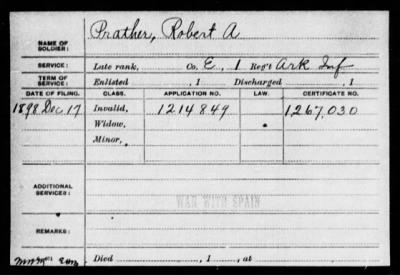 NAME OF SOLDIER: Prather, Robert A
SERVICE: Late rank, Co. E, 1 Reg't Ark Inf
TERM OF SERVICE: Enlisted , 1 Discharged , 1
DATE OF FILING. CLASS. APPLICATION NO. LAW. CERTIFICATE NO.
1898 Dec 17 Invalid, 1214849 1267,030
Widow,
Minor,
ADDITIONAL SERVICES:
WAR WITH SPAIN
REMARKS:
Died , 1 , at